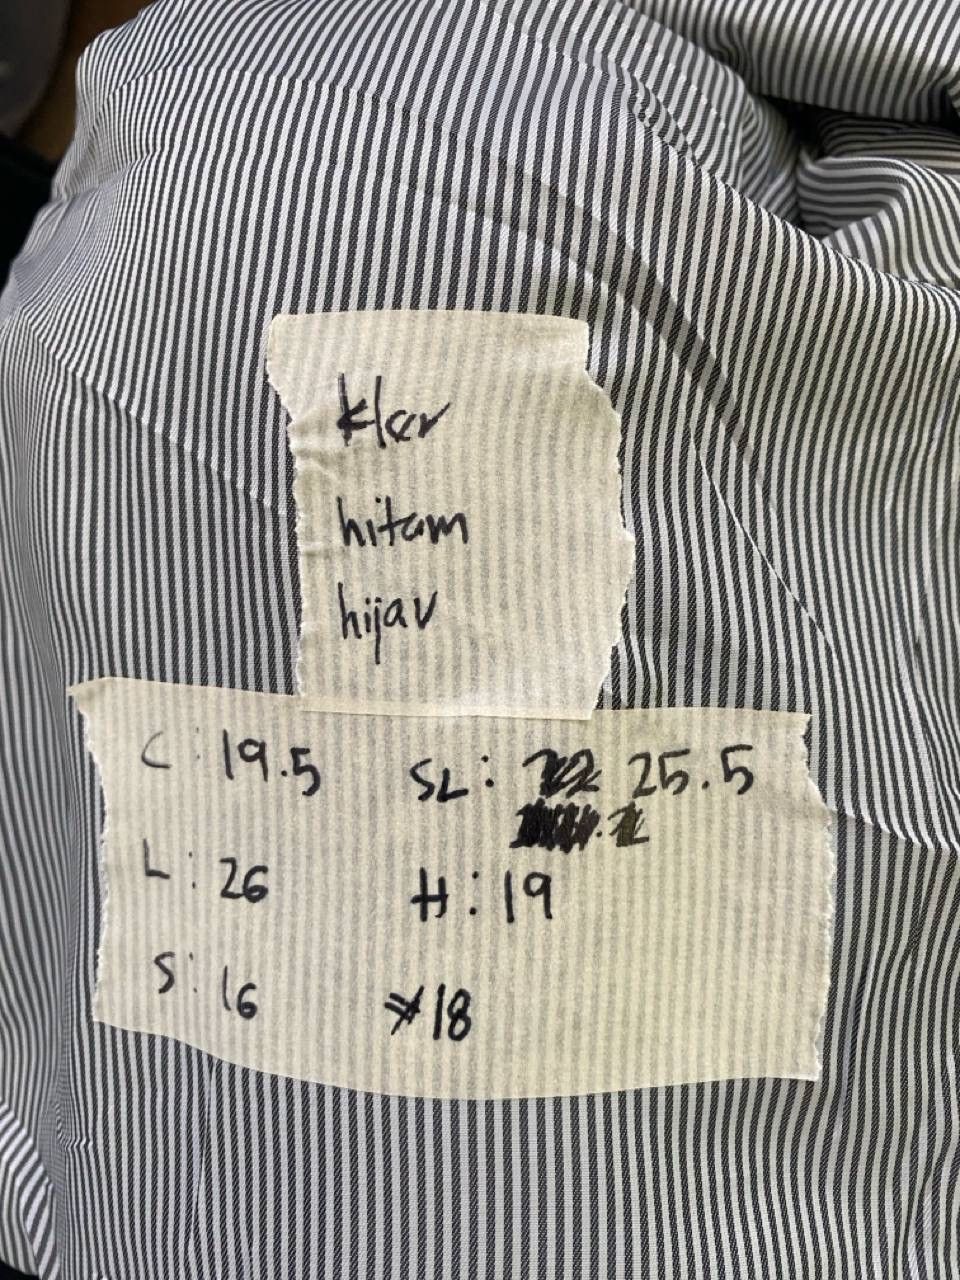 kler
hitam
hijau
C : 19.5 SL : 25.5
L : 26 H : 19
S : 16 *18